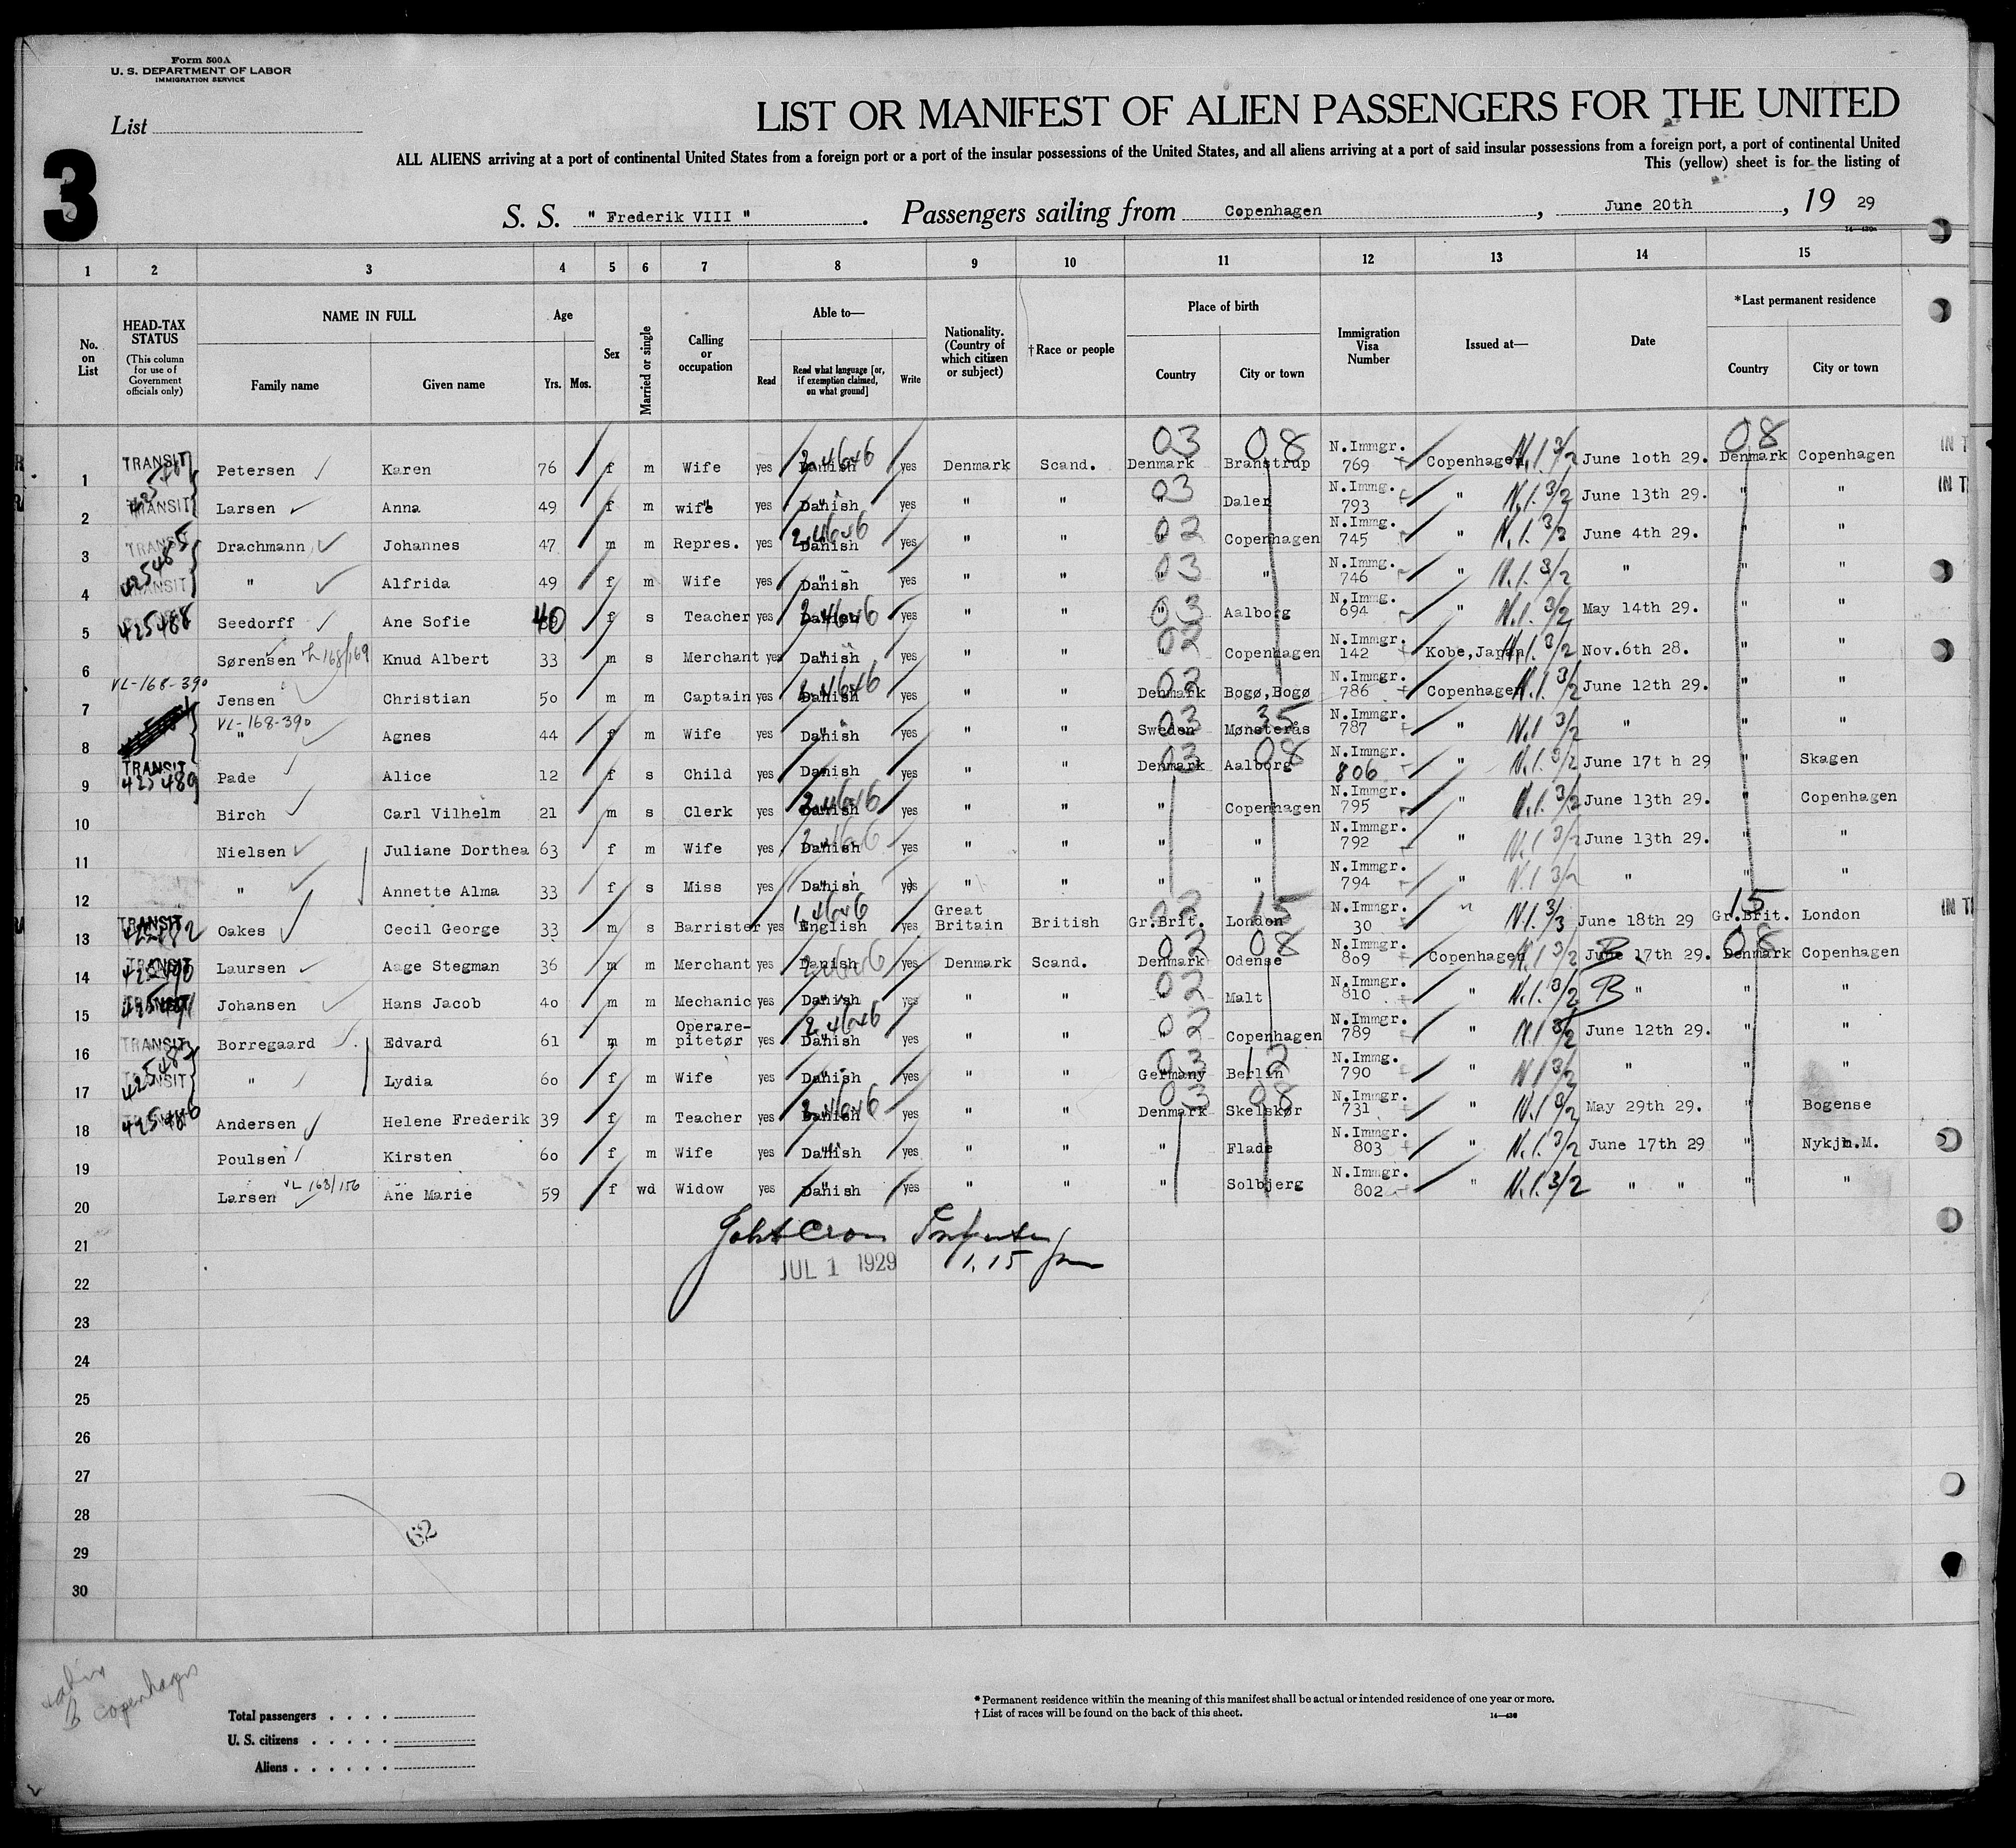 Form 500A
U. S. DEPARTMENT OF LABOR
IMMIGRATION SERVICE
List
3
LIST OR MANIFEST OF ALIEN PASSENGERS FOR THE UNITED
ALL ALIENS arriving at a port of continental United States from a foreign port or a port of the insular possessions of the United States, and all aliens arriving at a port of said insular possessions from a foreign port, a port of continental United
This (yellow) sheet is for the listing of
S. S. " Frederik VIII " . Passengers sailing from Copenhagen , June 20th , 19 29
1 2 3 4 5 6 7 8 9 10 11 12 13 14 15
No. on List
HEAD-TAX STATUS (This column for use of Government officials only)
NAME IN FULL
Family name Given name
Age
Yrs. Mos.
Sex
Married or single
Calling or occupation
Able to—
Read
Read what language [or, if exemption claimed, on what ground]
Write
Nationality. (Country of which citizen or subject)
†Race or people
Place of birth
Country City or town
Immigration Visa Number
Issued at—
Date
*Last permanent residence
Country City or town
1 TRANSIT Petersen Karen 76 f m Wife yes Danish yes Denmark Scand. Denmark Branstrup N.Immgr. 769 Copenhagen June 10th 29. Denmark Copenhagen
2 TRANSIT Larsen Anna 49 f m wife yes Danish yes " " " Daler N.Immg. 793 " June 13th 29. " "
3 TRANSIT Drachmann Johannes 47 m m Repres. yes Danish yes " " " Copenhagen N.Immg. 745 " June 4th 29. " "
4 TRANSIT " Alfrida 49 f m Wife yes Danish yes " " " " N.Immg. 746 " " " "
5 425488 Seedorff Ane Sofie 40 f s Teacher yes Danish yes " " " Aalborg N.Immg. 694 " May 14th 29. " "
6 Sørensen 168/169 Knud Albert 33 m s Merchant yes Danish yes " " Copenhagen N.Immgr. 142 Kobe,Japan Nov.6th 28. " "
7 VL-168-390 Jensen Christian 50 m m Captain yes Danish yes " " Denmark Bogø,Bogø N.Immgr. 786 Copenhagen June 12th 29. " "
8 VL-168-390 " Agnes 44 f m Wife yes Danish yes " " Sweden Mønsterås N.Immgr. 787 " " " "
9 TRANSIT 425489 Pade Alice 12 f s Child yes Danish yes " " Denmark Aalborg N.Immgr. 806 " June 17t h 29 " Skagen
10 Birch Carl Vilhelm 21 m s Clerk yes Danish yes " " " Copenhagen N.Immgr. 795 " June 13th 29. " Copenhagen
11 Nielsen Juliane Dorthea 63 f m Wife yes Danish yes " " " " N.Immgr. 792 " June 13th 29. " "
12 " Annette Alma 33 f s Miss yes Danish yes " " " " N.Immgr. 794 " " " "
13 TRANSIT Oakes Cecil George 33 m s Barrister yes English yes Great Britain British Gr.Brit. London N.Immgr. 30 " June 18th 29 Gr.Brit. London
14 TRANSIT Laursen Aage Stegman 36 m m Merchant yes Danish yes Denmark Scand. Denmark Odense N.Immgr. 809 Copenhagen June 17th 29. Denmark Copenhagen
15 TRANSIT Johansen Hans Jacob 40 m m Mechanic yes Danish yes " " " Malt N.Immgr. 810 " B " " "
16 TRANSIT Borregaard Edvard 61 m m Operare-pitetør yes Danish yes " " " Copenhagen N.Immgr. 789 " June 12th 29. " "
17 TRANSIT " Lydia 60 f m Wife yes Danish yes " " Germany Berlin N.Immg. 790 " " " "
18 TRANSIT 425486 Andersen Helene Frederik 39 f m Teacher yes Danish yes " " Denmark Skelskør N.Immgr. 731 " May 29th 29. " Bogense
19 Poulsen Kirsten 60 f m Wife yes Danish yes " " " Flade N.Immgr. 803 " June 17th 29 " Nykjh.M.
20 Larsen VL 163/156 Ane Marie 59 f wd Widow yes Danish yes " " " Solbjerg N.Immgr. 802 " " " " "
21
JUL 1 1929 1.15 pm
22
23
24
25
26
27
28
62
29
30
Copenhagen
Total passengers
U. S. citizens
Aliens
* Permanent residence within the meaning of this manifest shall be actual or intended residence of one year or more.
† List of races will be found on the back of this sheet.
14—430